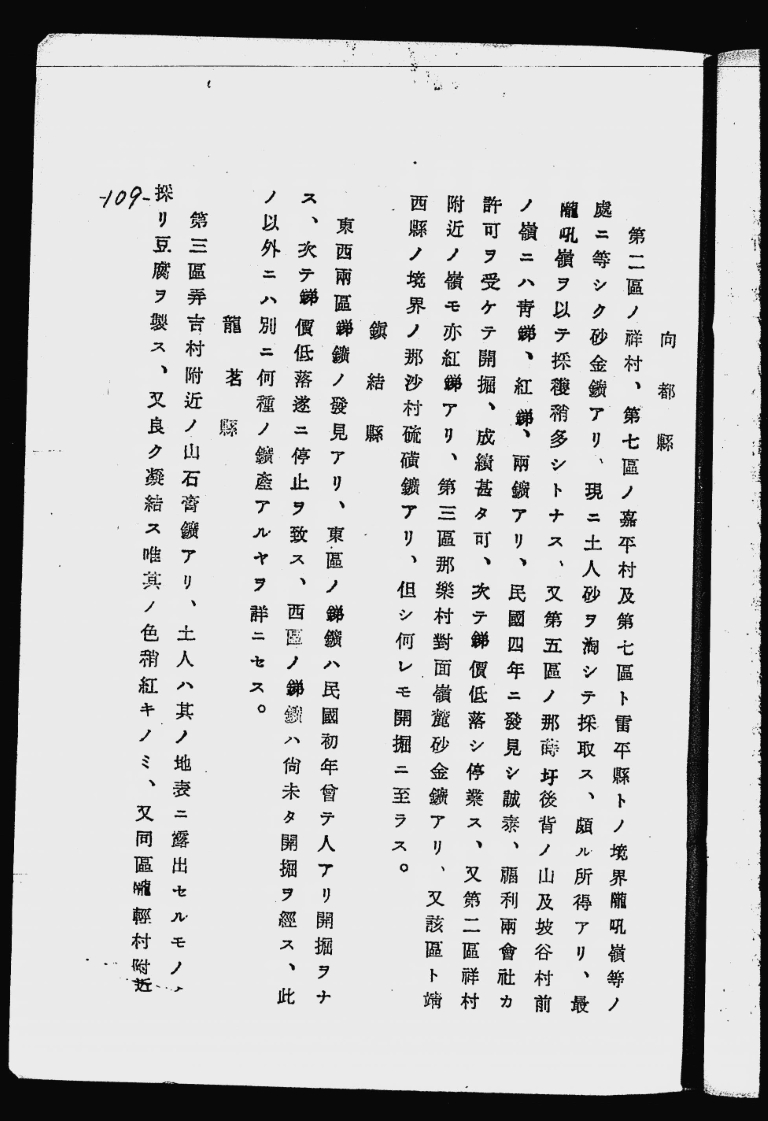 向都縣
第二區ノ祥村、第七區ノ嘉平村及第七區ト雷平縣トノ境界隴吼嶺等ノ
處ニ等シク砂金鑛アリ、現ニ土人砂ヲ淘シテ採取ス、頗ル所得アリ、最
隴吼嶺ヲ以テ採穫稍多シトナス、又第五區ノ那蒔圩後背ノ山及坡谷村前
ノ嶺ニハ靑銻、紅銻、兩鑛アリ、民國四年ニ發見シ誠泰、福利兩會社カ
許可ヲ受ケテ開掘、成績甚タ可、次テ銻價低落シ停業ス、又第二區祥村
附近ノ嶺モ亦紅銻アリ、第三區那樂村對面嶺麓砂金鑛アリ、又該區ト靖
西縣ノ境界ノ那沙村硫磺鑛アリ、但シ何レモ開掘ニ至ラス。
鎭結縣
東西兩區銻鑛ノ發見アリ、東區ノ銻鑛ハ民國初年曾テ人アリ開掘ヲナ
ス、次テ銻價低落遂ニ停止ヲ致ス、西區ノ銻鑛ハ尙未タ開掘ヲ經ス、此
ノ以外ニハ別ニ何種ノ鑛產アルヤヲ詳ニセス。
龍茗縣
第三區弄吉村附近ノ山石膏鑛アリ、土人ハ其ノ地表ニ露出セルモノヲ
採リ豆腐ヲ製ス、又良ク凝結ス唯其ノ色稍紅キノミ、又同區隴輕村附近
-109-